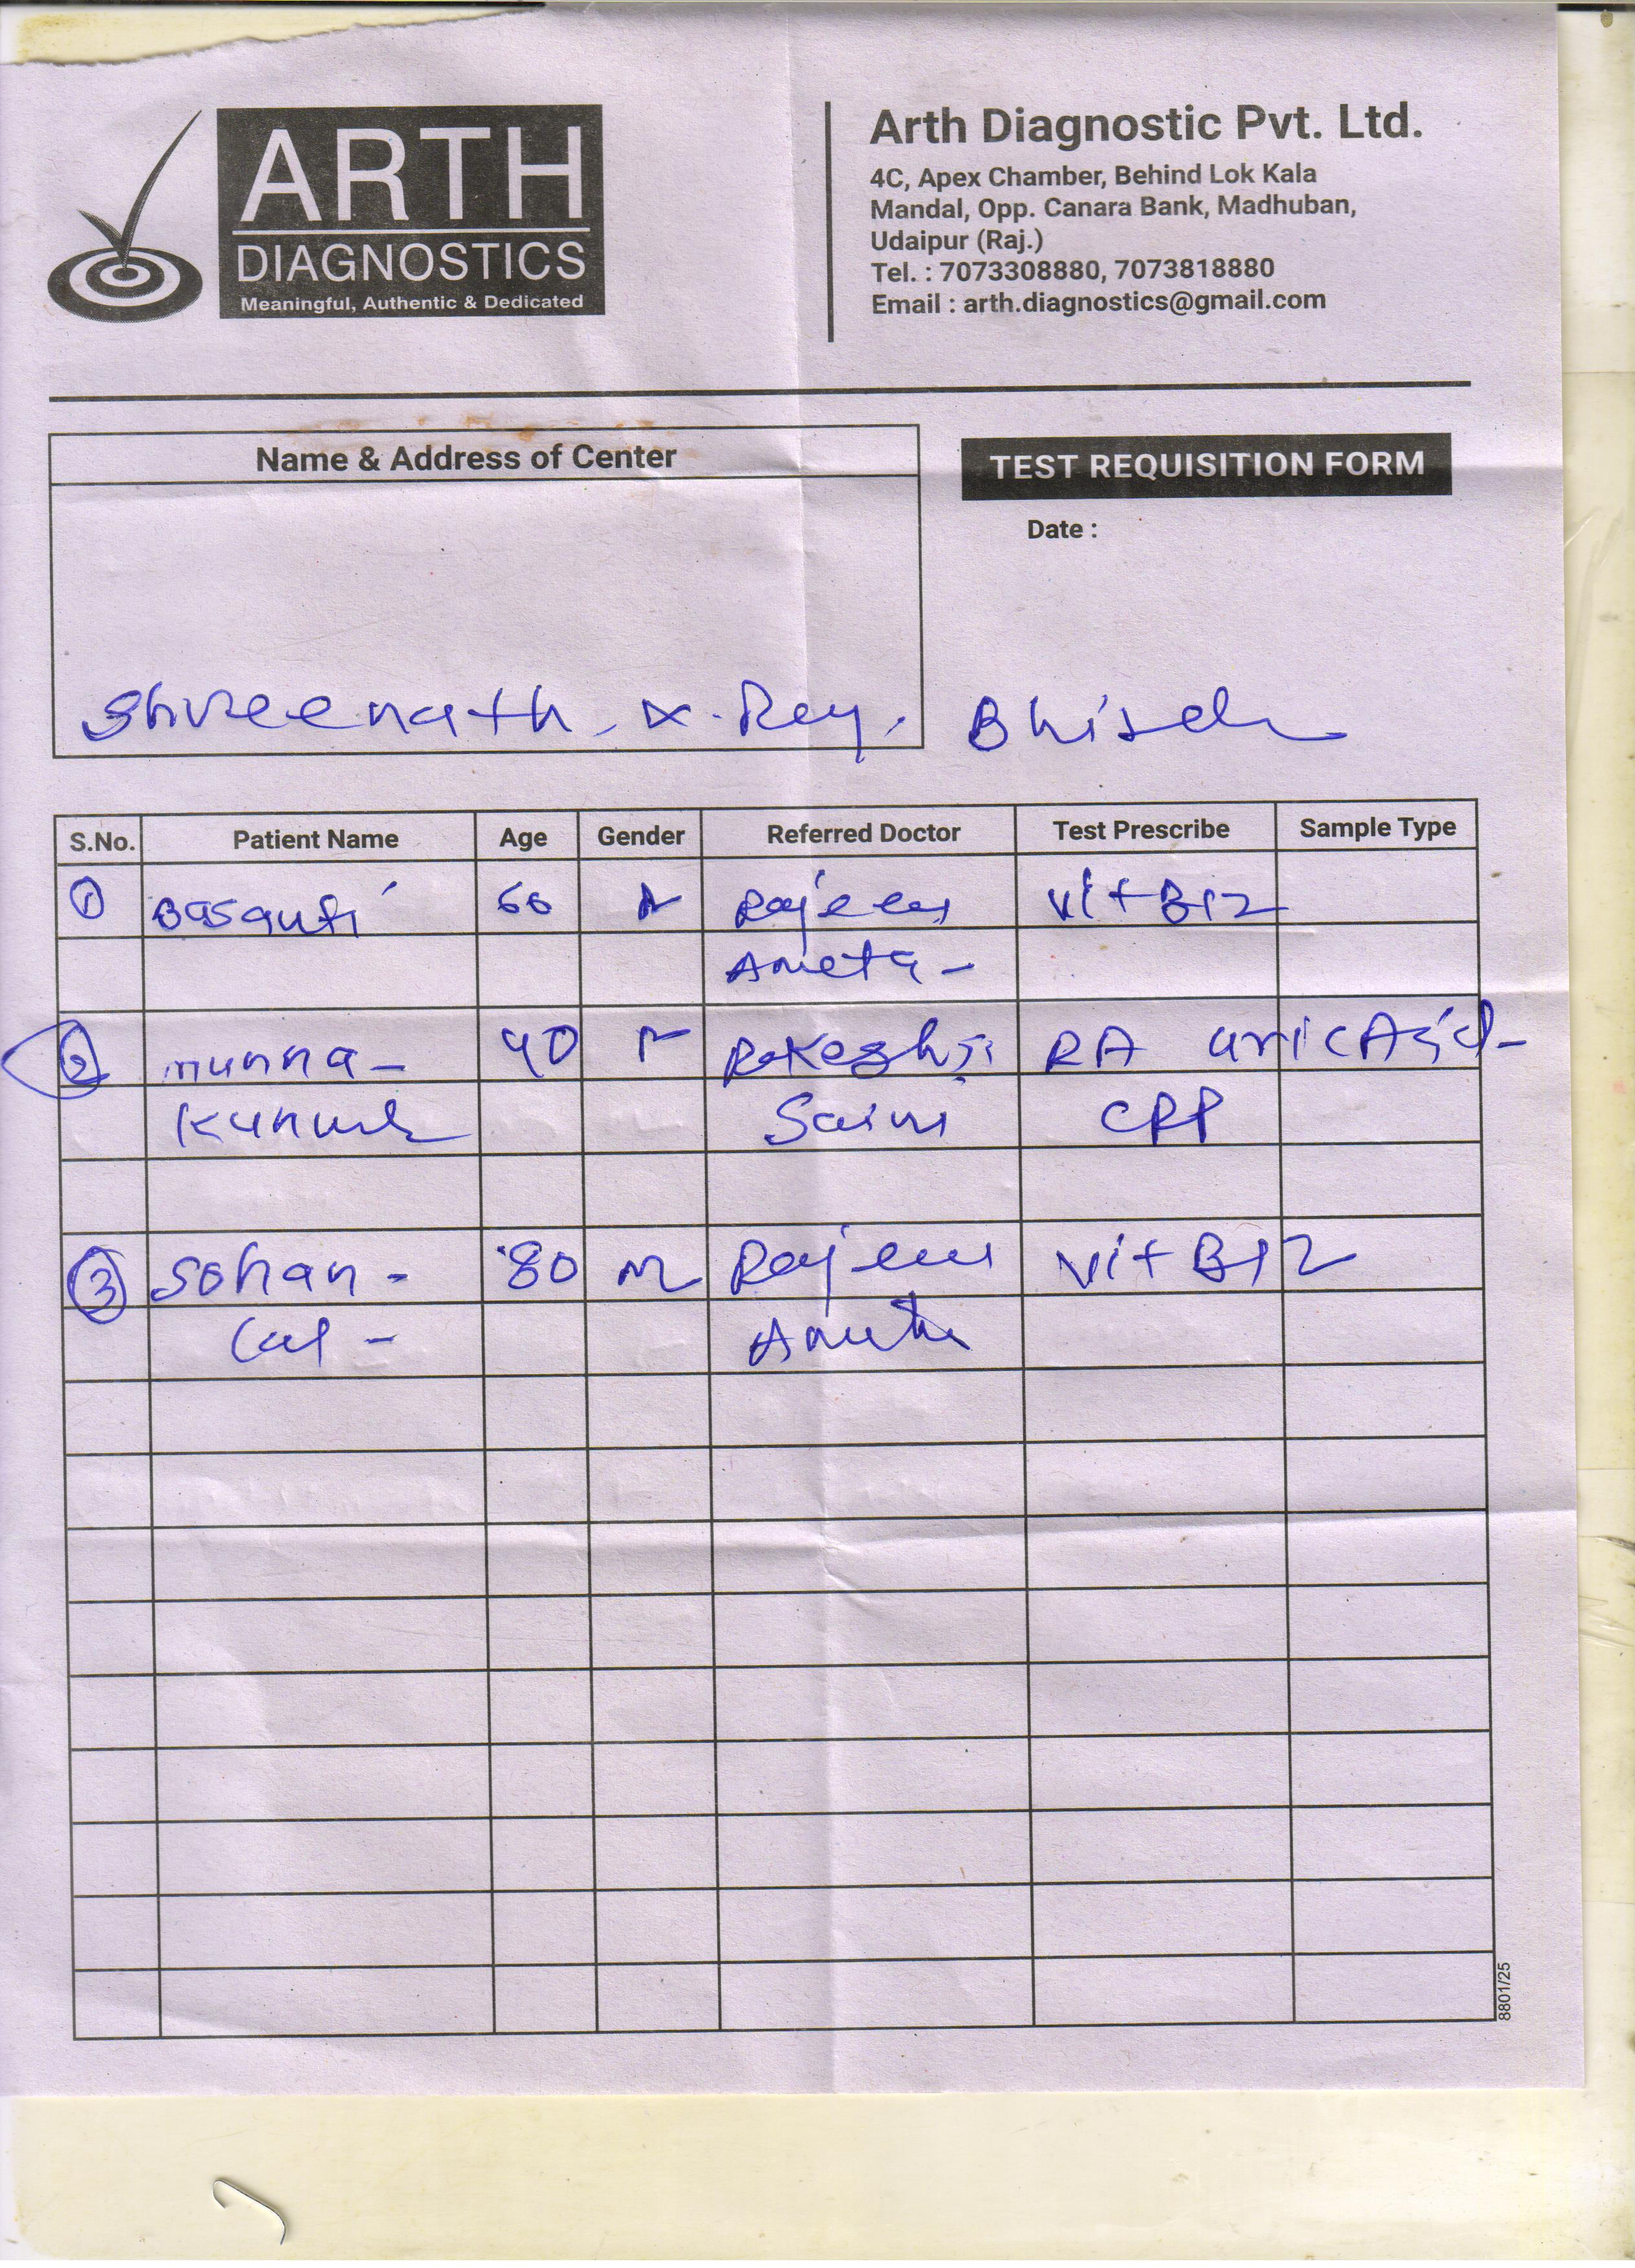 ARTH
DIAGNOSTICS
Meaningful, Authentic & Dedicated
Arth Diagnostic Pvt. Ltd.
4C, Apex Chamber, Behind Lok Kala
Mandal, Opp. Canara Bank, Madhuban,
Udaipur (Raj.)
Tel. : 7073308880, 7073818880
Email : arth.diagnostics@gmail.com
Name & Address of Center
TEST REQUISITION FORM
Date :
Shreenath X-Ray, 
S.No. Patient Name Age Gender Referred Doctor Test Prescribe Sample Type
1 Basanti 60 Vit B12
Ameta -
2 munna - 40 F Rakeshji RA uric Acid -
Saini CRP
3 Sohan - 80 M Vit B12
Lal -
8801/25